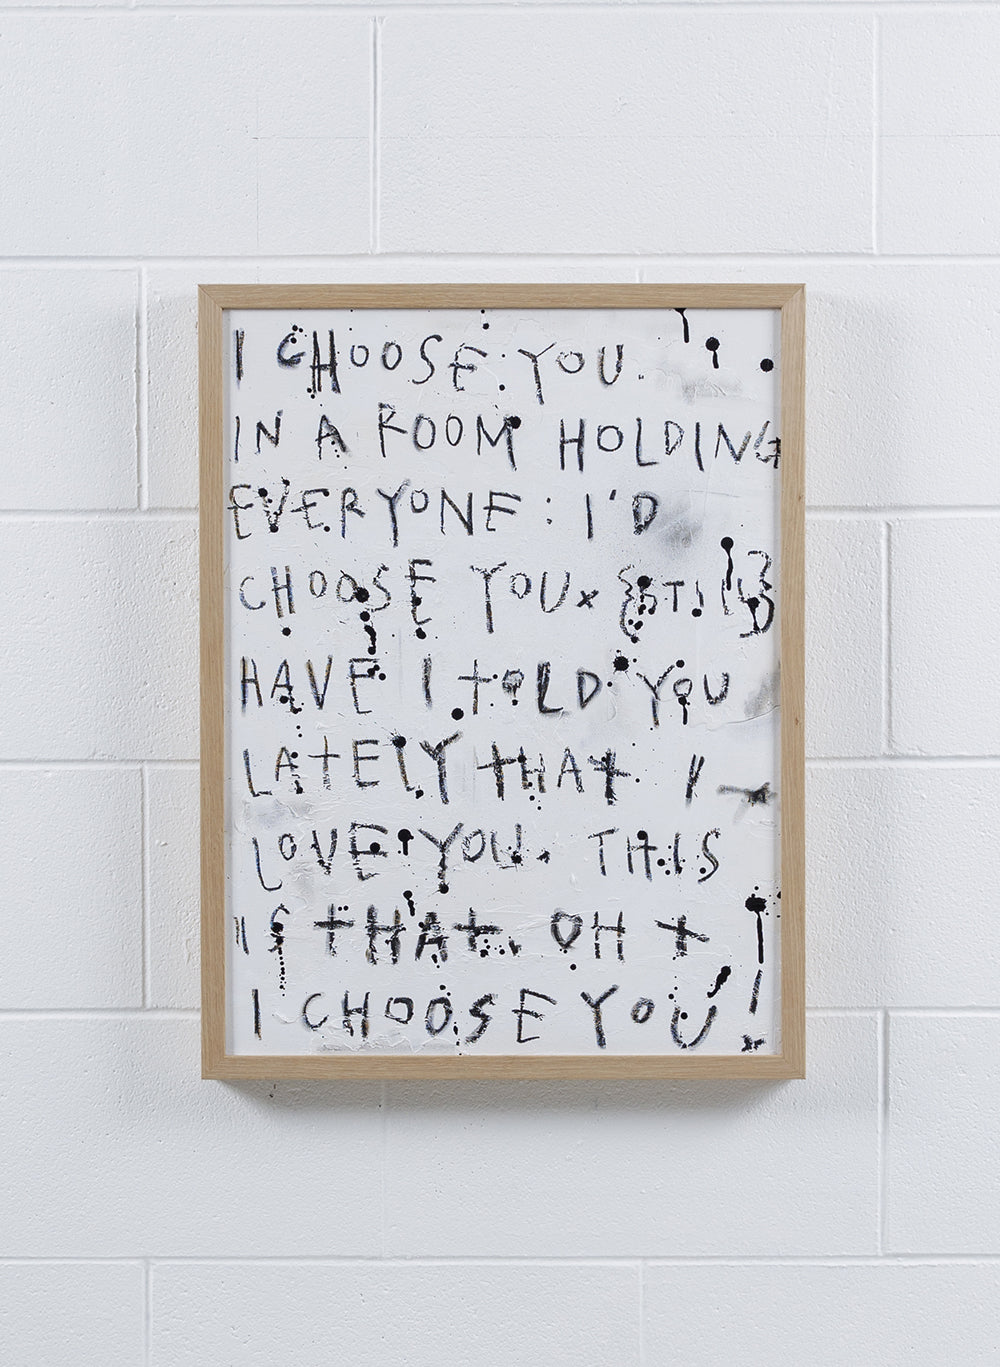 I CHOOSE YOU.
IN A ROOM HOLDING
EVERYONE: I'D
CHOOSE YOUx {STILL}
HAVE I TOLD YOU
LATELY THAT I
LOVE YOU. THIS
IS THAT. OH +
I CHOOSE YOU!